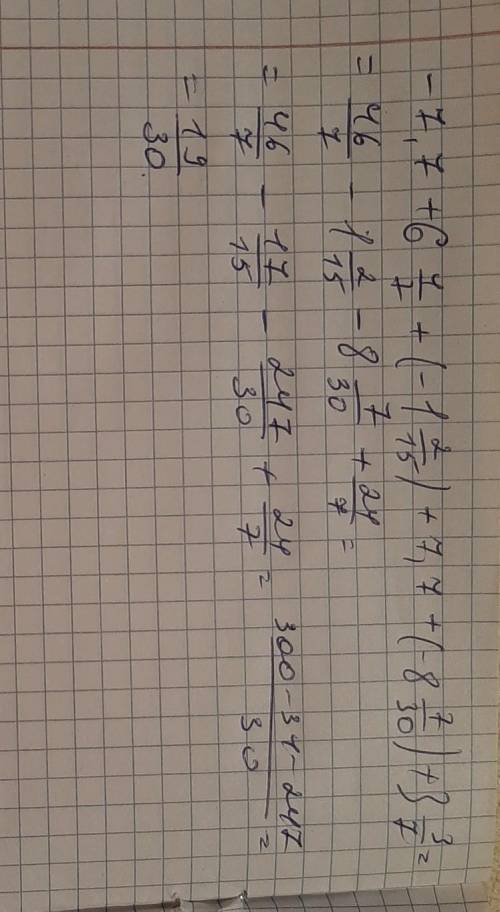 -7,7 + 6 4/7 + (-1 2/15) + 7,7 + (-8 7/30) + 3 3/7 =
= 46/7 - 1 2/15 - 8 7/30 + 24/7 =
= 46/7 - 17/15 - 247/30 + 24/7 = (300 - 34 - 247)/30 =
= 19/30.